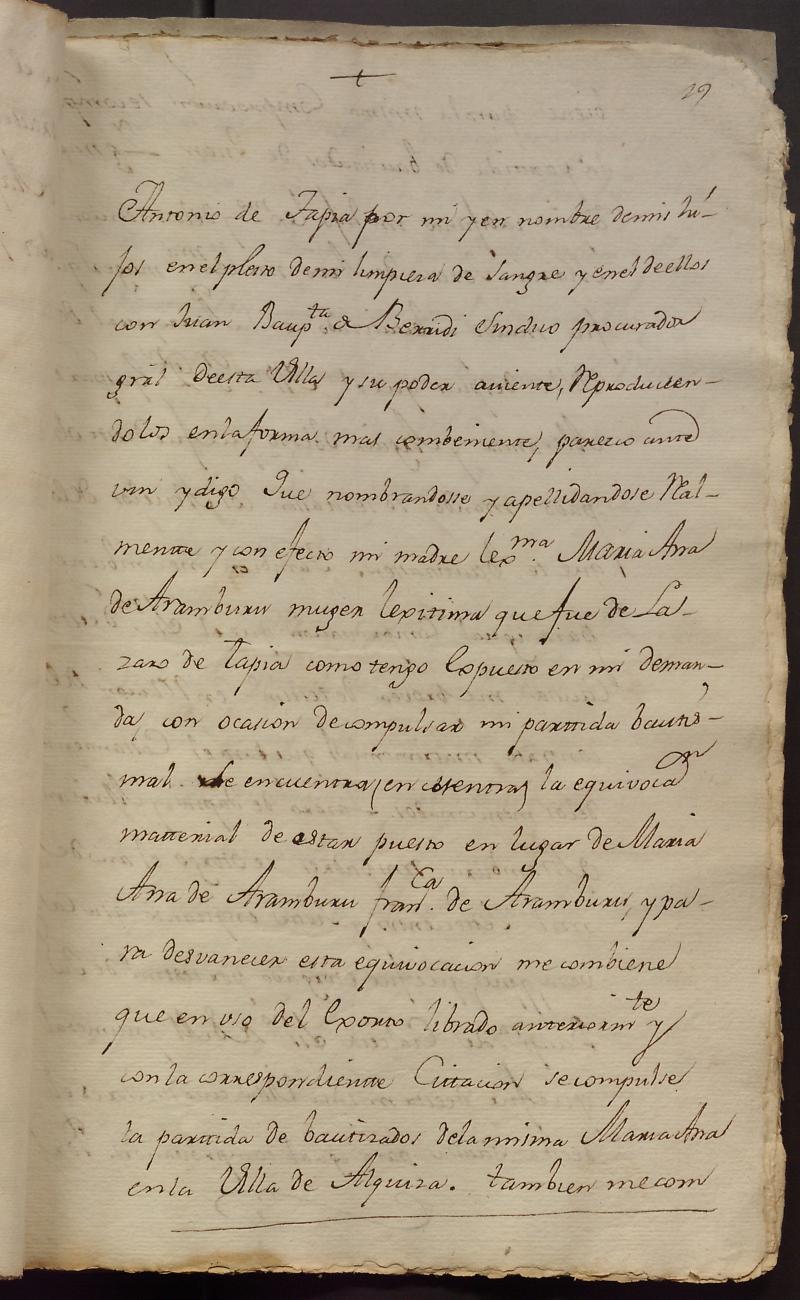 +
29
Antonio de Tapia por mi y en nombre de mis hi-
jos en el pleito de mi limpieza de sangre y en el de ellos
con Juan Baup.ta de Berridi Sindico procurador
gräl de esta Villa y su poder aviente, Reproducien-
dolos en la forma mas combeniente, parezco ante
vm y digo Que nombrandosse y apellidandose Real-
mentte y con efecto mi madre lex.ma Maria Ana
de Aramburu muger lexitima que fue de La-
zaro de Tapia como tengo Expuesto en mi deman-
da, con ocasion de compulsar mi parttida bautis-
mal se encuentra la equivocaon
matterial de estar puesto en lugar de Maria
Ana de Aramburu fran.ca de Aramburu, y pa-
ra desvanecer esta equivocacion me combiene
que en uso del Exorto librado anteriormte y
con la correspondientte Cittacion se compulse
la parttida de bautizados de la misma Maria Ana
en la Villa de Alquiza. tambien me com